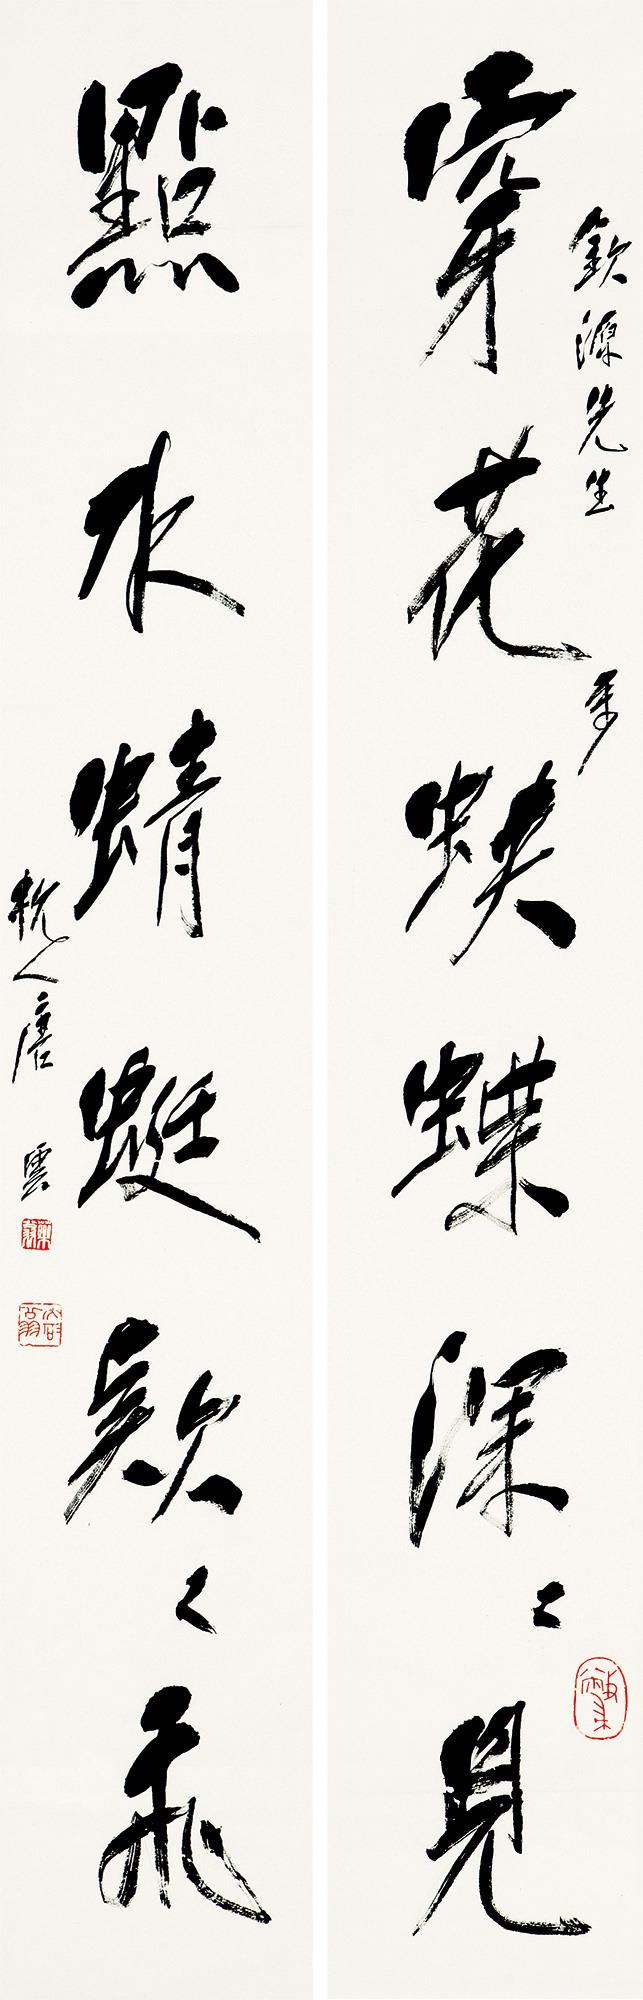 穿花蛱蝶深〻見
點水蜻蜓款〻飛
欽源先生
杭人唐雲